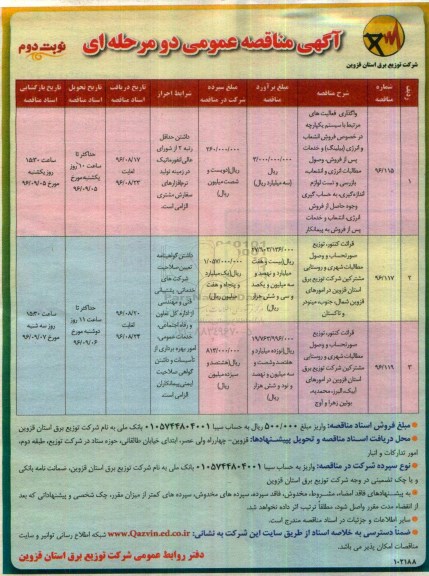 آگهی مناقصه عمومی دو مرحله ای
نوبت دوم
شرکت توزیع برق استان قزوین
ردیف
شماره مناقصه
شرح مناقصه
مبلغ برآورد مناقصه
مبلغ سپرده شرکت در مناقصه
شرایط احراز
تاریخ دریافت اسناد مناقصه
تاریخ تحویل اسناد مناقصه
تاریخ بازگشایی اسناد مناقصه
۱
۹۶/۱۱۵
واگذاری فعالیت های
مرتبط با سیستم یکپارچه
در خصوص فروش انشعاب
و انرژی (بیلینگ) و خدمات
پس از فروش، وصول
مطالبات انرژی و انشعاب،
بازرسی و تست لوازم
اندازه گیری، به حساب گیری
وجوه حاصل از فروش
انرژی، انشعاب و خدمات
پس از فروش به پیمانکار
۳/۰۰۰/۰۰۰/۰۰۰
ریال
(سه میلیارد ریال)
۲۶۰/۰۰۰/۰۰۰
ریال(دویست و
شصت میلیون
ریال)
داشتن حداقل
رتبه ۲ از شورای
عالی انفورماتیک
در زمینه تولید
نرم افزارهای
سفارش مشتری
الزامی است.
۹۶/۰۸/۱۷
لغایت
۹۶/۰۸/۲۳
حداکثر تا
ساعت ۱۰ روز
یکشنبه مورخ
۹۶/۰۹/۰۵
ساعت ۱۵:۳۰
روز یکشنبه
مورخ ۹۶/۰۹/۰۵
۲
۹۶/۱۱۷
قرائت کنتور، توزیع
صورتحساب و وصول
مطالبات شهری و روستایی
مشترکین شرکت توزیع برق
استان قزوین در امورهای
قزوین شمال، جنوب، مینودر
و تاکستان
ریال(بیست و هفت
میلیارد و نهصد و
سه میلیون و یکصد
و سی و شش هزار
ریال)
۱/۰۵۷/۰۰۰/۰۰۰
ریال(یک میلیارد
و پنجاه و هفت
میلیون ریال)
داشتن گواهینامه
تعیین صلاحیت
شرکت های
خدماتی، پشتیبانی
فنی و مهندسی
از اداره کل تعاون
و رفاه اجتماعی،
خدمات عمومی،
امور بهره برداری از
تأسیسات و داشتن
گواهی صلاحیت
ایمنی پیمانکاران
الزامی است.
۹۶/۰۸/۲۰
لغایت
۹۶/۰۸/۲۳
حداکثر تا
ساعت ۱۱ روز
دوشنبه مورخ
۹۶/۰۹/۰۶
ساعت ۱۵:۳۰
روز سه شنبه
مورخ ۹۶/۰۹/۰۷
۳
۹۶/۱۱۹
قرائت کنتور، توزیع
صورتحساب و وصول
مطالبات شهری و روستایی
مشترکین شرکت توزیع برق
استان قزوین در امورهای
آبیک، البرز، محمدیه،
بوئین زهرا و آوج
ریال(نوزده میلیارد و
هفتصد و شصت و
سه میلیون و نهصد
و نود و شش هزار
ریال)
۸۱۳/۰۰۰/۰۰۰
ریال(هشتصد و
سیزده میلیون
ریال)
● مبلغ فروش اسناد مناقصه: واریز مبلغ ۵۰۰/۰۰۰ ریال به حساب سیبا ۰۱۰۵۷۴۴۸۰۴۰۰۱ بانک ملی به نام شرکت توزیع برق استان قزوین
● محل دریافت اسناد مناقصه و تحویل پیشنهادها: قزوین- چهارراه ولی عصر، ابتدای خیابان طالقانی، حوزه ستاد در شرکت توزیع، طبقه دوم،
امور تدارکات و انبار
● نوع سپرده شرکت در مناقصه: واریز به حساب سیبا ۰۱۰۵۷۴۴۸۰۴۰۰۱ بانک ملی به نام شرکت توزیع برق استان قزوین، ضمانت نامه بانکی
و یا چک تضمینی در وجه شرکت توزیع برق استان قزوین
● به پیشنهادهای فاقد امضاء، مشروط، مخدوش، فاقد سپرده، سپرده های مخدوش، سپرده های کمتر از میزان مقرر، چک شخصی و پیشنهاداتی که بعد
از انقضاء مدت مقرر واصل شود، مطلقاً ترتیب اثر داده نخواهد شد.
● سایر اطلاعات و جزئیات در اسناد مناقصه مندرج است.
● ضمناً دسترسی به خلاصه اسناد از طریق سایت این شرکت به نشانی: www.Qazvin.ed.co.ir شبکه اطلاع رسانی توانیر و سایت
مناقصات امکان پذیر می باشد.
دفتر روابط عمومی شرکت توزیع برق استان قزوین
۱۰۲۱۸۸